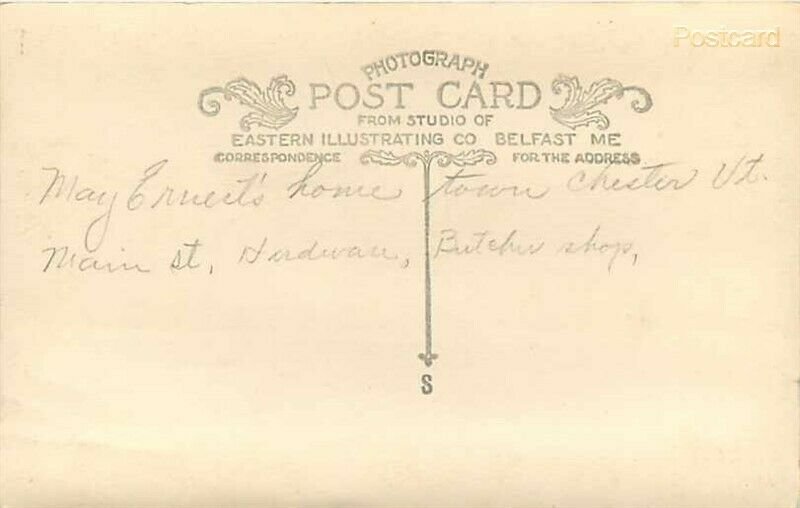 Postcard
PHOTOGRAPH
POST CARD
FROM STUDIO OF
EASTERN ILLUSTRATING CO BELFAST ME
CORRESPONDENCE FOR THE ADDRESS
May Ernest's home town Chester Vt.
Main St, Hardware, Butcher shop,
S